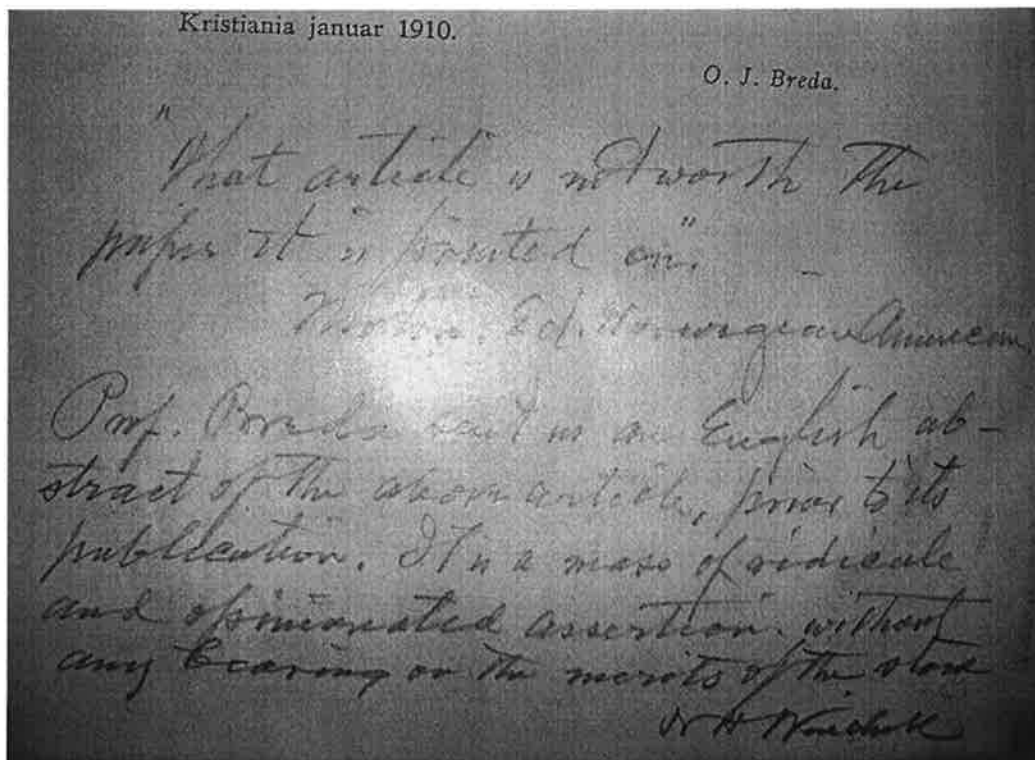 Kristiania januar 1910.
O. J. Breda.
"That article is not worth the
paper it is printed on."
Ed. Norwegian American
Prof. Breda sent us an English ab-
stract of the above article, prior to its
publication. It is a mass of ridicule
and opinionated assertion, without
any bearing on the merits of the stone
N H Winchell